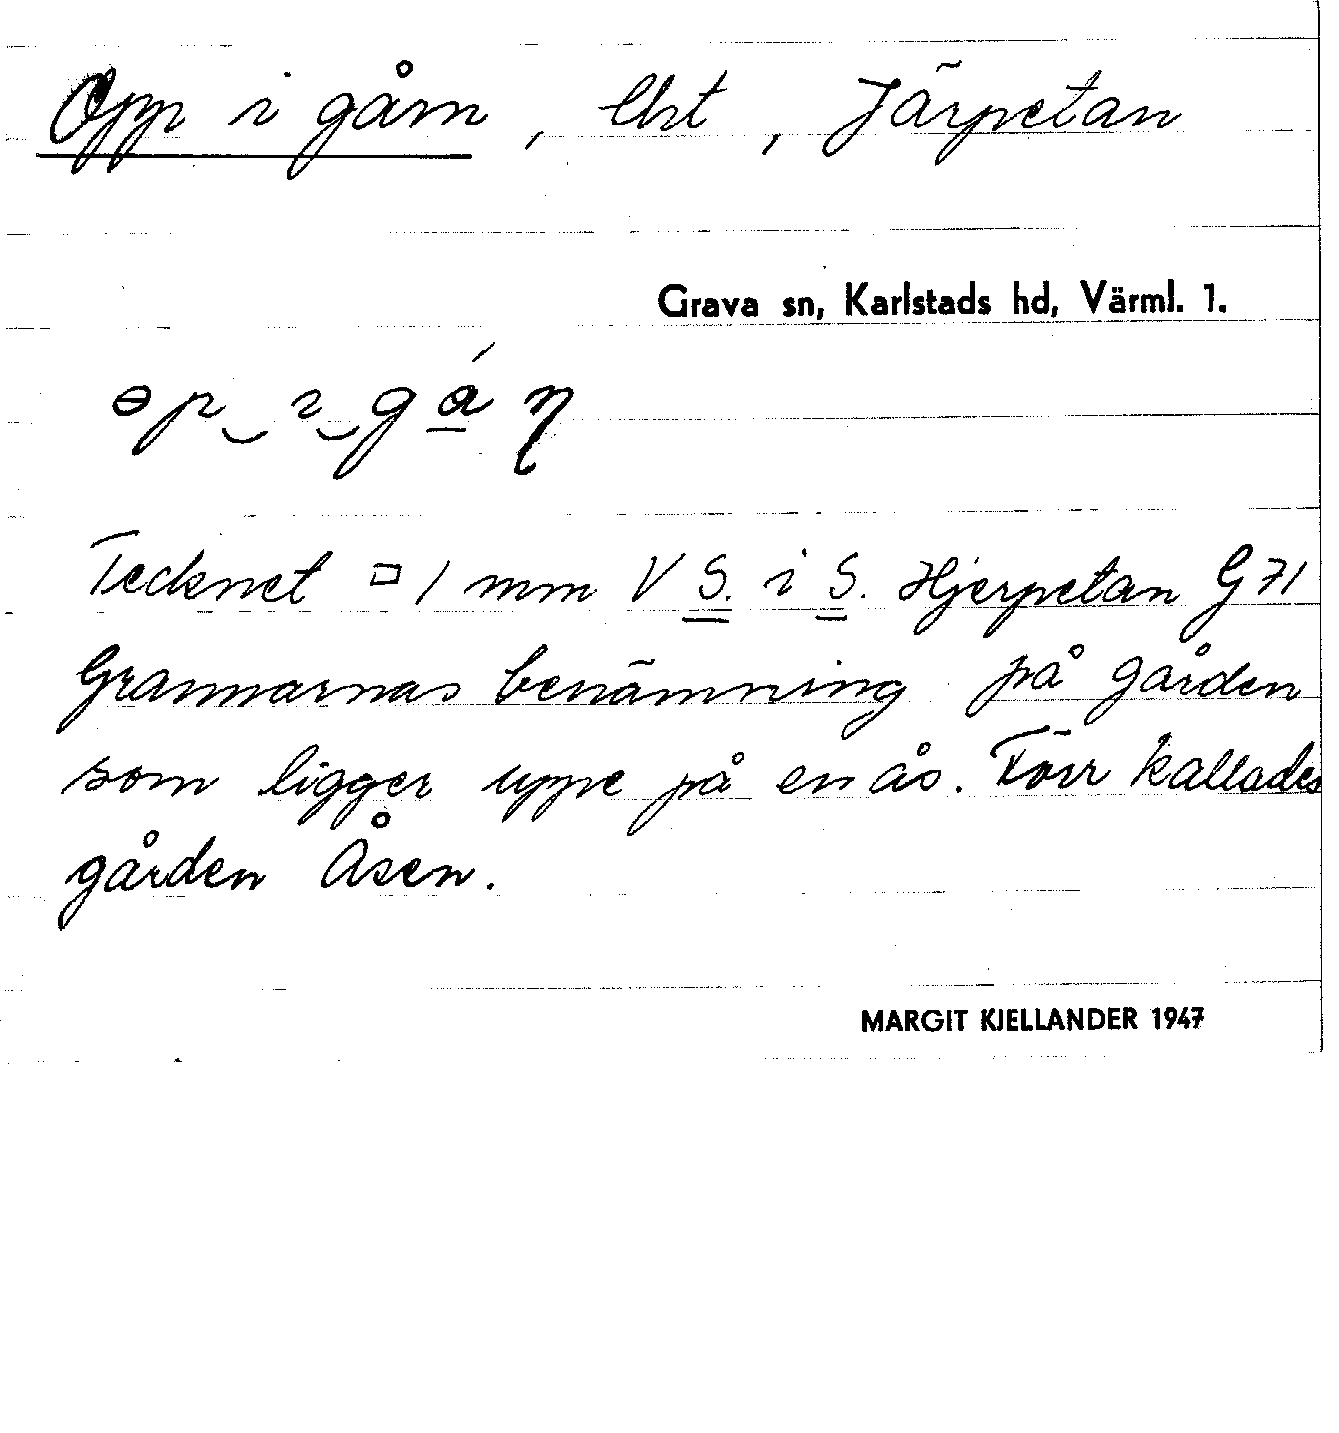 Opp i gårn, lht, Järpetan
Grava sn, Karlstads hd, Värml. 1.
əp‿ɪ‿gá̱ɳ
Tecknet □ 1 mm V S. i S. Hjerpetan G 71
Grannarnas benämning på gården
som ligger uppe på en ås. Förr kallades
gården Åsen.
MARGIT KJELLANDER 1947